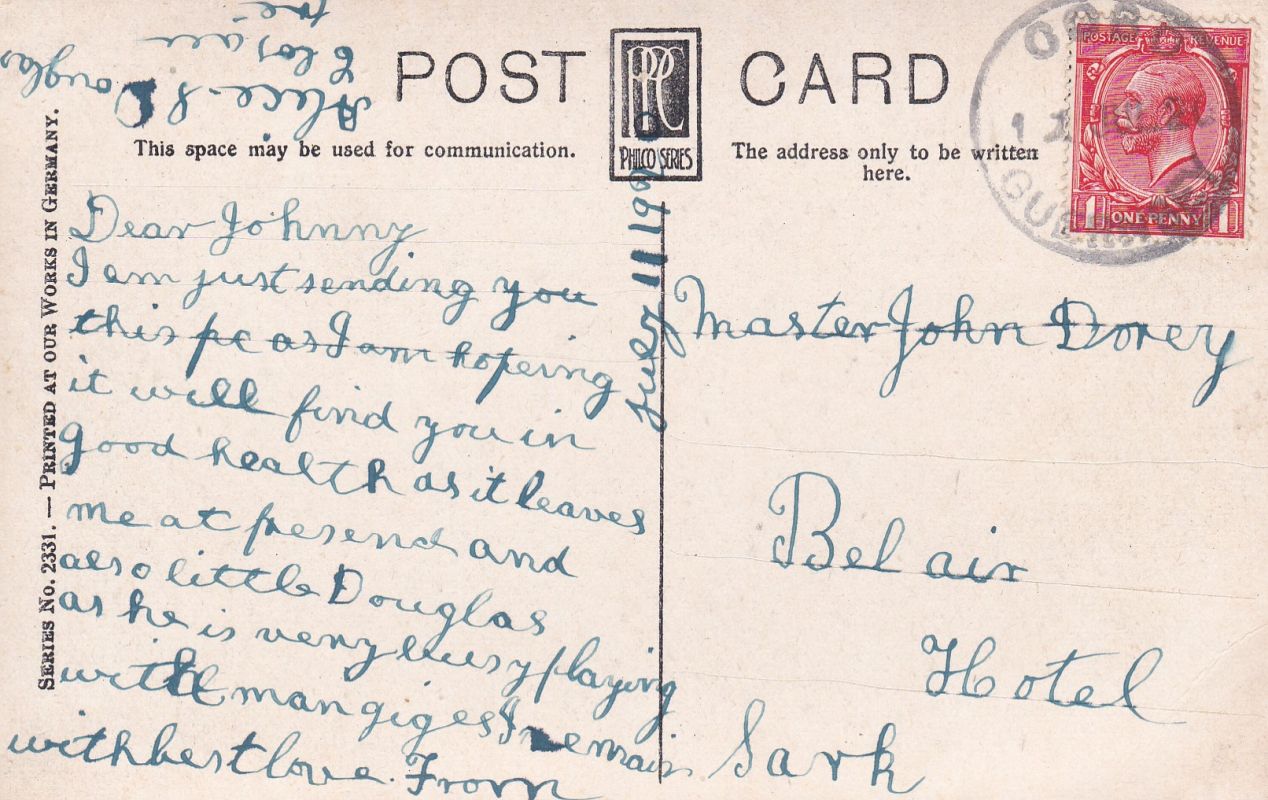 POST CARD
PHILCO SERIES
This space may be used for communication.
The address only to be written
here.
POSTAGE REVENUE
1 ONE PENNY 1
SERIES NO. 2331. — PRINTED AT OUR WORKS IN GERMANY.
Dear Johnny
I am just sending you
this pc as I am hopeing
it will find you in
good health as it leaves
me at presend and
also little Douglas
as he is very busy playing
with
I remain
with best love. From
Alice &
Douglas
Master John Dorey
Bel air
Hotel
Sark